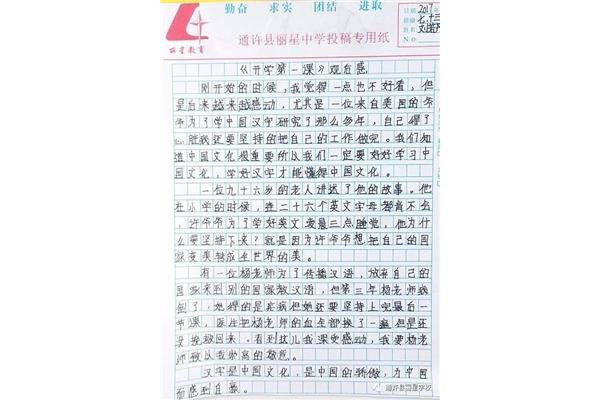 勤奋 求实 团结 进取
丽星教育
通许县丽星中学投稿专用纸
日期 2017年
班级 七.十三
姓名
NO
《开学第一课》观后感
刚开始的时候，我觉得一点也不好看，但
是后来越来越感动，尤其是一位来自美国的爷
爷为了学中国汉字研究了那么多年，自己得了
脏病还要坚持的把自己的工作做完。我们知
道中国文化很重要所以我们一定要好好学习中
国文化，学好汉字才能懂得中国文化。
一位九十六岁的老人讲述了他的故事。他
在小学的时候，连二十六个英文字母都背不么
，许爷爷为了学好英文凌晨三点睡觉，他为什
么要坚持下来？就是因为许爷爷想把自己的国
家变美转成全世界的美。
有一位杨老师为了传播汉语，放弃自己的
国家来到别的国家教汉语，但第三年杨老师病
倒了，她得的是疾病但她还要坚持上完最后一
节课，医生把杨老师的血全部换了一遍但是还
没挽救回来。看到这儿我深受感动，我要杨老
师致以我崇高的敬意。
汉字是中国文化，是中国的骄傲，为中国
而感到自豪。
通许县丽星学校